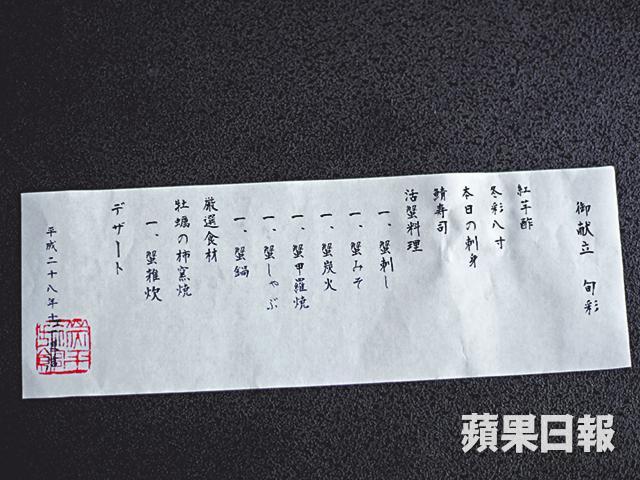 御献立　旬彩
紅芋酢
冬彩八寸
本日の刺身
鯖寿司
活蟹料理
一、蟹刺し
一、蟹みそ
一、蟹炭火
一、蟹甲羅焼
一、蟹しゃぶ
一、蟹鍋
厳選食材
牡蠣の柿窯焼
一、蟹雑炊
デザート
平成二十八年十
蘋果日報